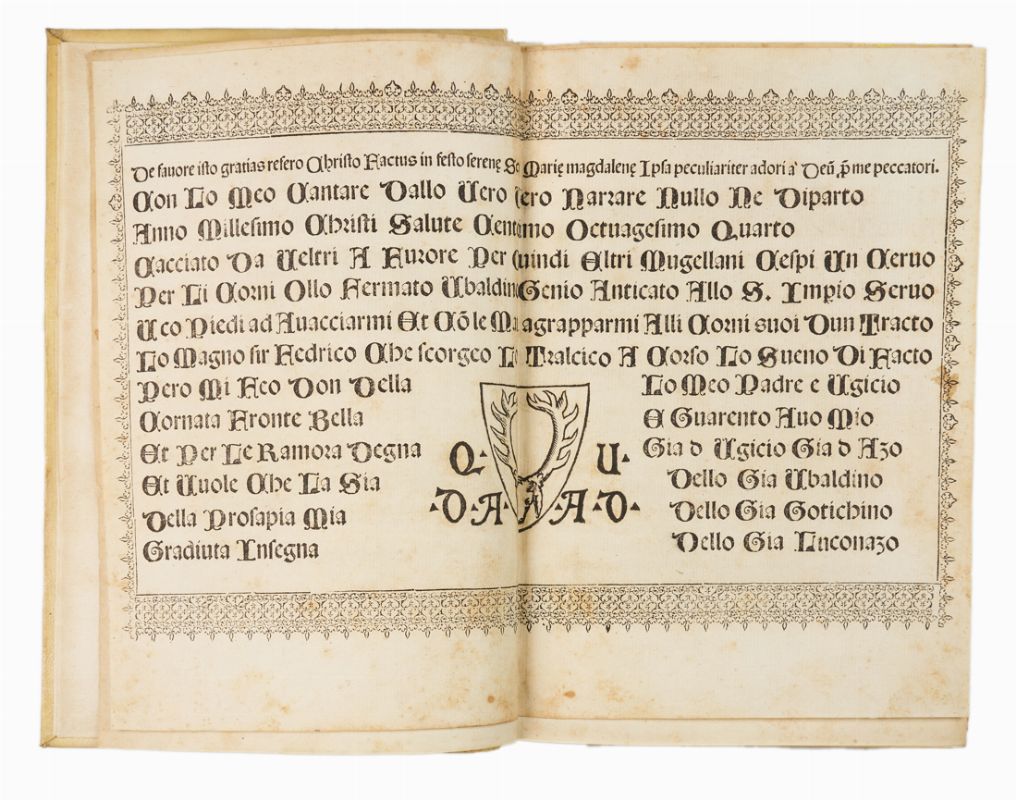 De fauore isto gratias refero Christo Factus in festo serenę Marię magdalenę Ipsa peculiariter adori a' Deū, p̄ me peccatori.
Con Lo Meo Cantare Dallo Uero Narrare Nullo Ne Diparto
Anno Millesimo Christi Salute Octuagesimo Quarto
Cacciato Da Ueltri A Furore Per Quindi Eltri Mugellani Cespi Un Ceruo
Per Li Corni Ollo Fermato Ubaldin Genio Anticato Allo S. Impio Seruo
U co Piedi ad Auacciarmi Et Cō le agrapparmi Alli Corni suoi Dun Tracto
Lo Magno sir Fedrico Che scorgeo Lo Tralcico A Corso Lo Sueno Di Facto
Pero Mi Feo Don Della
Cornata Fronte Bella
Et Per Le Ramora Degna
Et Uuole Che La Sia
Della Prosapia Mia
Gradiuta Insegna
Q· U·
·D·A· A·D·
Lo Meo Padre e Ugicio
E Guarento Auo Mio
Gia d Ugicio Gia d Azo
Dello Gia Ubaldino
Dello Gia Gotichino
Dello Gia Luconazo